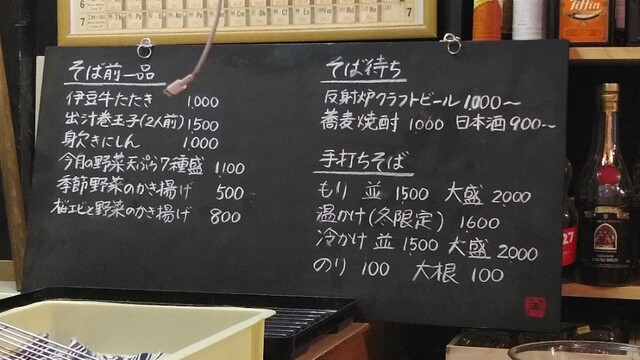 そば前一品
伊豆牛たたき 1,000
出汁巻玉子(2人前) 1,500
身欠きにしん 1,000
今月の野菜天ぷら7種盛 1,100
季節野菜のかき揚げ 500
桜エビと野菜のかき揚げ 800
そば待ち
反射炉クラフトビール 1,000~
蕎麦焼酎 1,000 日本酒 900~
手打ちそば
もり 並 1500 大盛 2000
温かけ(冬限定) 1600
冷かけ 並 1500 大盛 2000
のり 100 大根 100
Tiffin
27
6
7
7